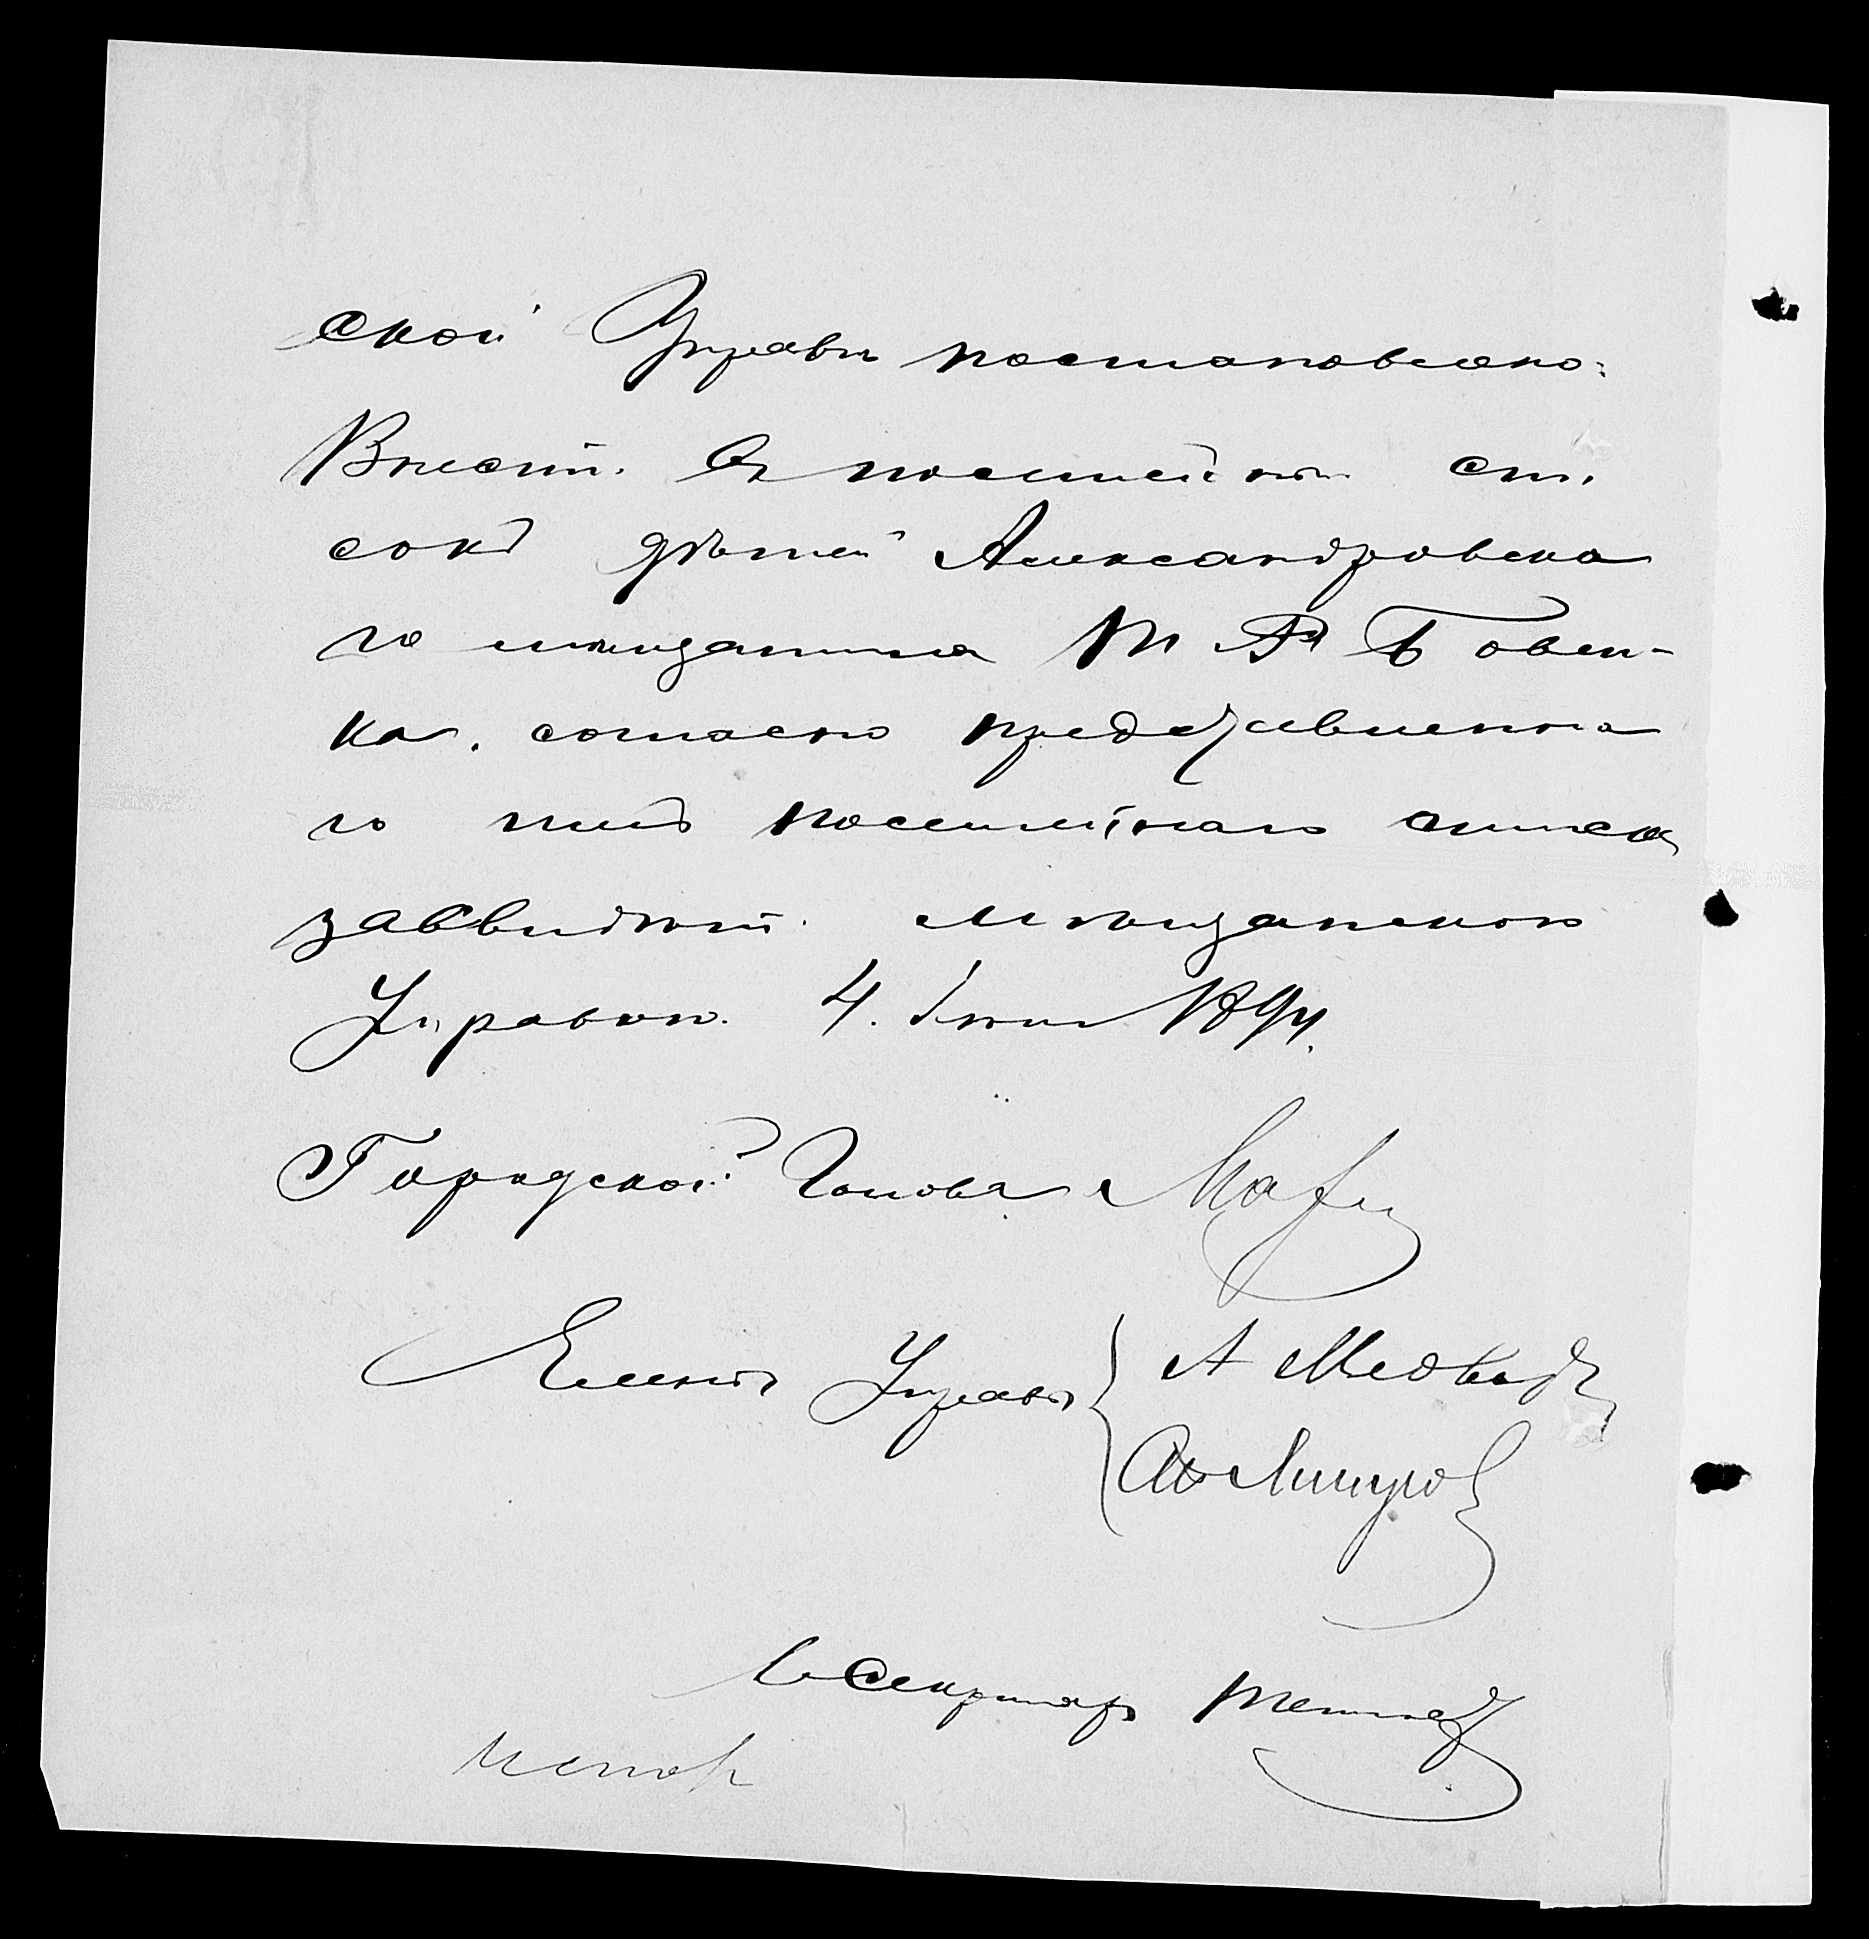 ской Управы постановлено:
Внести въ посемейный спи
сокъ дѣтей Александровска
го мѣщанина М Я Бовен-
ка, согласно представленна
го имъ посемейнаго списка
засвидѣт. мѣщанскою
Управою. 4. Іюня 1894.
Городской Голова
Члены Управы А Медвед
Секретарь